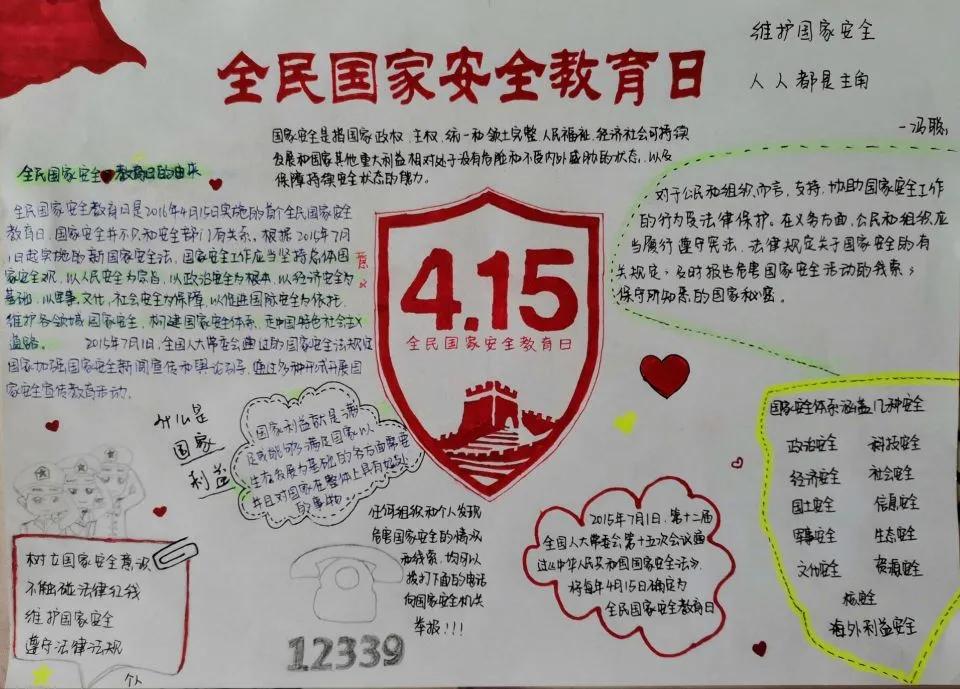 维护国家安全
人人都是主角
全民国家安全教育日
国家安全是指国家政权、主权、统一和领土完整、人民福祉、经济社会可持续
发展和国家其他重大利益相对处于没有危险和不受内外威胁的状态，以及
保障持续安全状态的能力。
全民国家安全教育日的由来
全民国家安全教育日是2016年4月15日实施的首个全民国家安全
教育日，国家安全并不只和安全部门有关系，根据2015年7月
1日起实施的新国家安全法，国家安全工作应当坚持总体国
家安全观，以人民安全为宗旨，以政治安全为根本，以经济安全为
基础，以军事、文化、社会安全为保障，以促进国际安全为依托，
维护各领域国家安全，构建国家安全体系，走中国特色社会主义
道路。 2015年7月1日，全国人大常委会通过的国家安全法规定
国家加强国家安全新闻宣传和舆论引导，通过多种形式开展国
家安全宣传教育活动。
4.15
全民国家安全教育日
对于公民和组织而言，支持、协助国家安全工作
的行为受法律保护。在义务方面，公民和组织应
当履行遵守宪法、法律规定关于国家安全的有
关规定；及时报告危害国家安全活动的线索；
保守所知悉的国家秘密。
什么是
国家
利益
国家利益就是满
足或能够满足国家以
生存发展为基础的各方面需要
并且对国家在整体上具有好处
的事物。
任何组织和个人发现
危害国家安全的情况
和线索，均可以
拨打下面的电话
向国家安全机关
举报！！！
12339
2015年7月1日，第十二届
全国人大常委会第十五次会议通
过《中华人民共和国国家安全法》，
将每年4月15日确定为
全民国家安全教育日
国家安全体系涵盖几种安全
政治安全 科技安全
经济安全 社会安全
国土安全 信息安全
军事安全 生态安全
文化安全 资源安全
核安全
海外利益安全
树立国家安全意识
不触碰法律红线
维护国家安全
遵守法律法规
个人